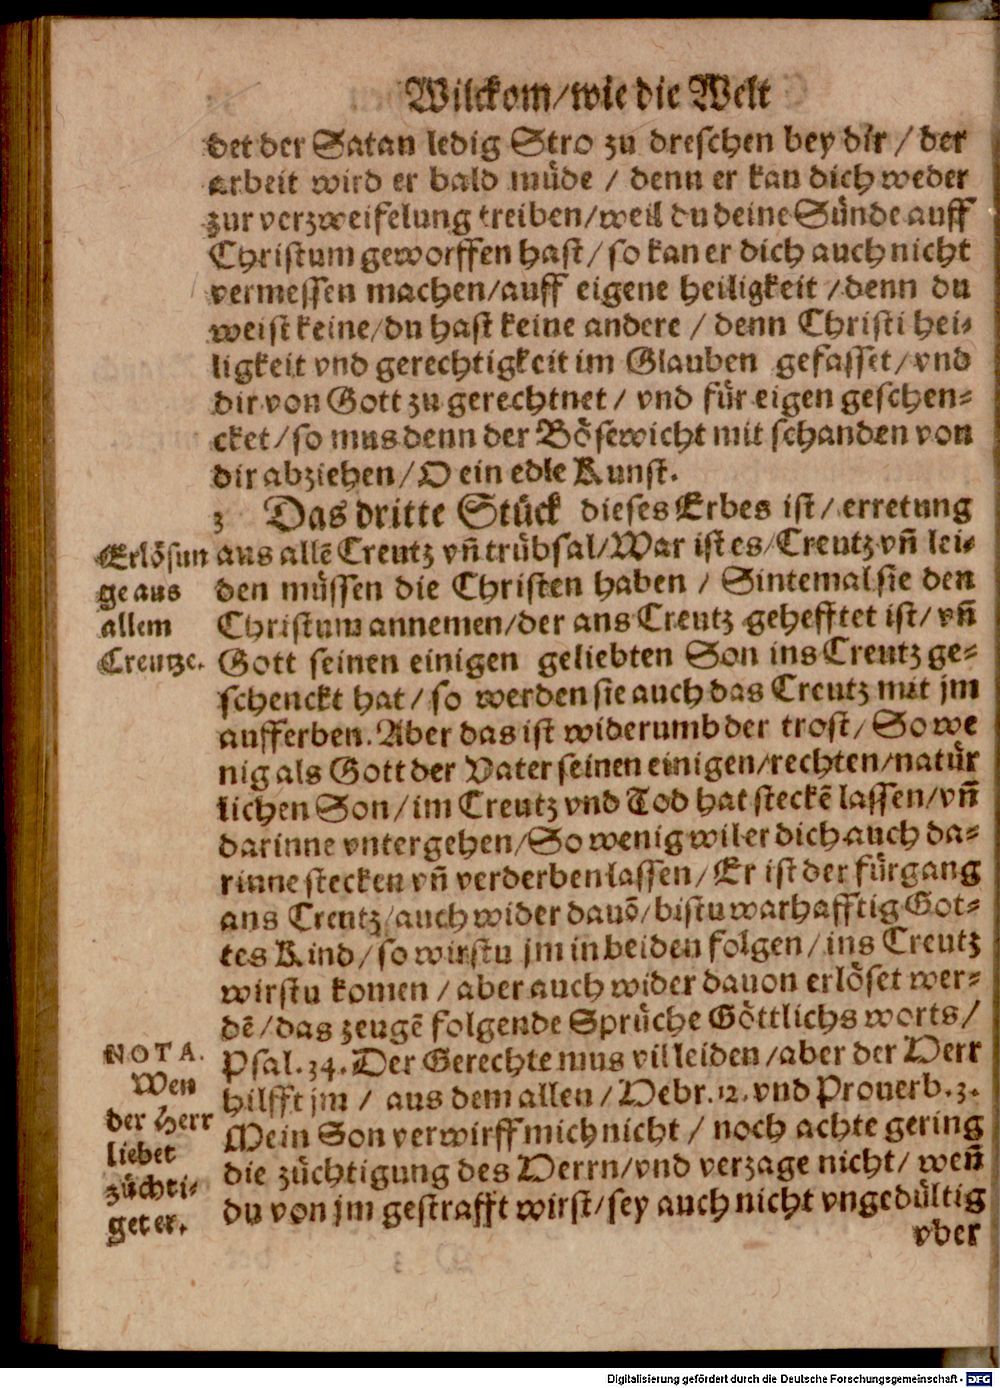 Wilckom/wie die Welt
det der Satan ledig Stro zu dreschen bey dir / der
arbeit wird er bald müde / denn er kan dich weder
zur verzweifelung treiben/weil du deine Sünde auff
Christum geworffen hast/ so kan er dich auch nicht
vermessen machen/auff eigene heiligkeit /denn du
weist keine/du hast keine andere / denn Christi hei-
ligkeit vnd gerechtigkeit im Glauben gefasset/ vnd
dir von Gott zu gerechtnet / vnd für eigen geschen-
cket/so mus denn der Bösewicht mit schanden von
dir abziehen/O ein edle Kunst.
3 Das dritte Stück dieses Erbes ist/ erretung
Erlösun
ge aus
allem
Creutze.
aus allē Creutz vn̄ trübsal/War ist es/Creutz vn̄ lei-
den müssen die Christen haben / Sintemal sie den
Christum annemen/der ans Creutz gehefftet ist/ vn̄
Gott seinen einigen geliebten Son ins Creutz ge-
schenckt hat/ so werden sie auch das Creutz mit jm
aufferben. Aber das ist widerumb der trost/ So we
nig als Gott der Vater seinen einigen/rechten/natür
lichen Son/im Creutz vnd Tod hat steckē lassen/vn̄
darinne vntergehen/So wenig wil er dich auch da-
rinne stecken vn̄ verderben lassen/ Er ist der fürgang
ans Creutz/auch wider dauō/bistu warhafftig Got-
tes Kind/so wirstu jm in beiden folgen/ins Creutz
wirstu komen /aber auch wider dauon erlöset wer-
dē/das zeugē folgende Sprüche Göttlichs worts/
NOTA.
Wen
der Herr
liebet
züchti-
get er.
Psal. 34. Der Gerechte mus vil leiden/aber der Herr
hilfft jm / aus dem allen/Hebr. 12. vnd Prouerb. 3.
Mein Son verwirff mich nicht / noch achte gering
die züchtigung des Herrn/vnd verzage nicht/ wen̄
du von jm gestrafft wirst/sey auch nicht vngedültig
vber
Digitalisierung gefördert durch die Deutsche Forschungsgemeinschaft - DFG